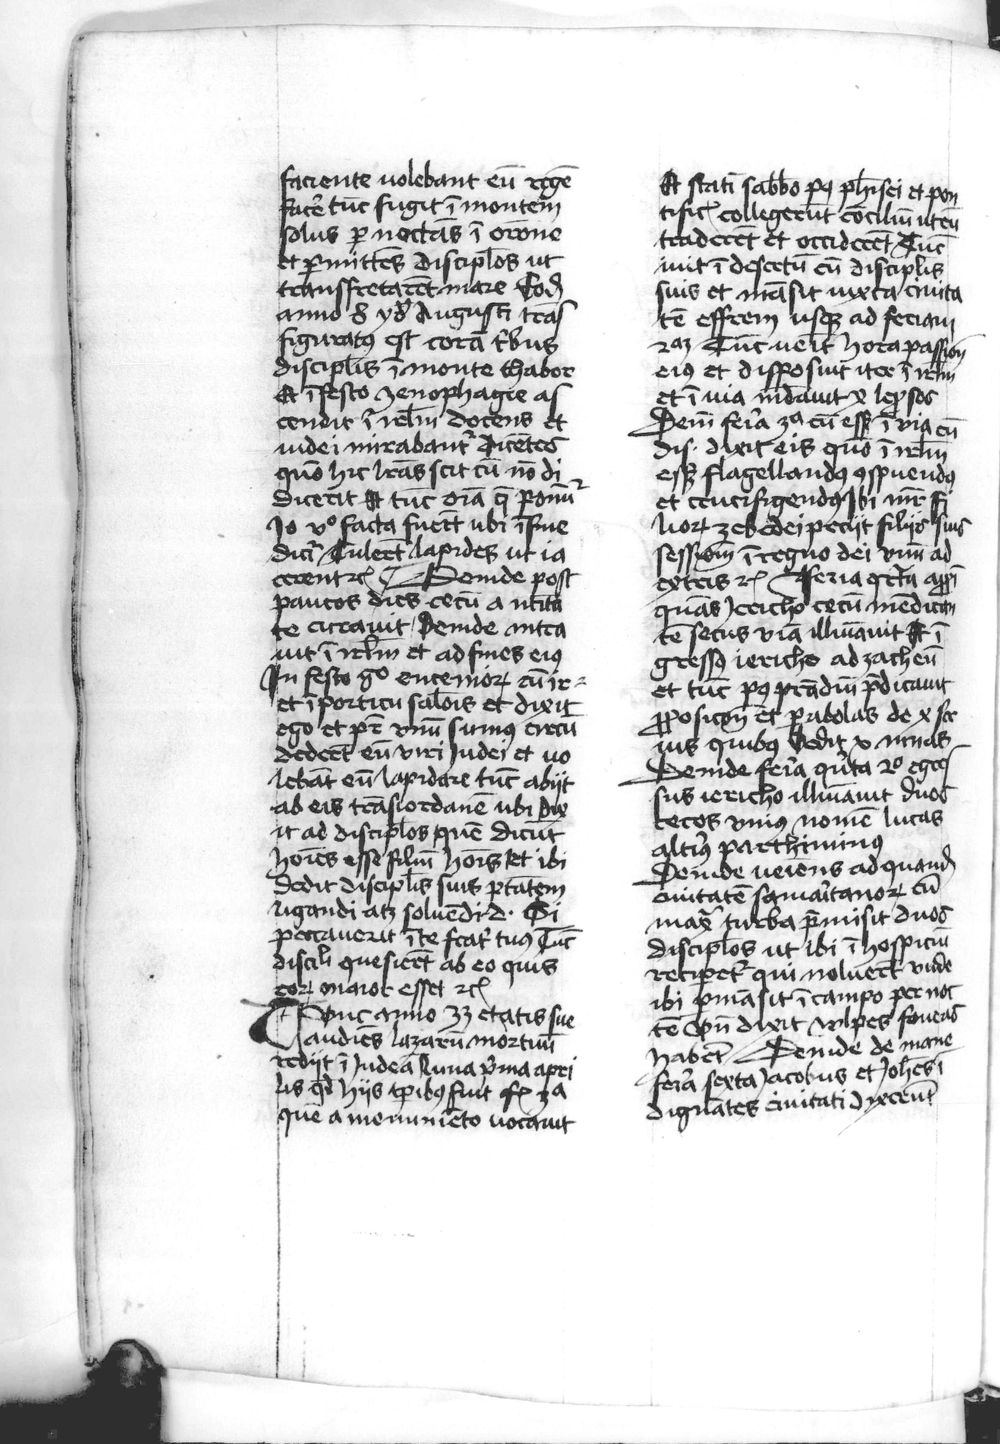 faciente uolebant eū regē
facē tūc fugit ī montem
solus p̄ noctās ī orōne
et p̄mittēs discip̄los ut
transfretarēt mare Eod̄
anno 8 yd̄ Augusti trās
figuratꝰ est corā tⁱbus
discip̄lis ī monte thabor
Et ī festo zenophagie as
cendit ī irl̄m docens et
iudei mirabantᷣ dicētes
quō hic lr̄as scit cū nō di
dicerit Et tūc oīa q̄
Jo vᵒ facta fuerūt ubi ī fine
dicit̄ Tulerūt lapides ut ia
cerent ⁊c̄ Deinde post
paucos dies cecū a natiuita
te curauit Deinde intra
uit ī irl̄m et ad fines eiꝰ
In festo gᵒ encenioꝝ
et ī porticu salōis et dixit
ego et pr̄ vnū sumꝰ circū
dederūt eū viri Judei et uo
lebāt eū lapidare tūc abijt
ab eis trās iordanē ubi dix
it ad discip̄los quē dicūt
hoīes esse filiū hoīs Et ibi
dedit discip̄lis suis ptātem
ligandi atqꝫ soluēdi d. Si
peccauerit ī te fratᷣ tuꝰ Tūc
discīli quesierūt ab eo quis
eoꝝ maior esset ⁊c̄
Tunc anno 33 etatis sue
audiēs lazarū mortuū
redijt ī Judeā luna p̄ma apri
lis qd̄ hijs tp̄ibꝰ fuit fꝭ 3a
quē a monumēto uocauit
Et statī sabbō pꝰ ph̄isei et pon
tificꝭ collegerūt cōciliū ut eū
traderēt et occiderēt Tūc
iuit ī desertū cū discip̄lis
suis et māsit iuxta ciuita
tē effrem usqꝫ ad feriam
2am Tūc uenit hora passiōn
eiꝰ et disposuit iter ī irl̄m
et ī uia mūdauit x lep̄sos
Dein̄ feria 3ª cū esset ī via cū
dis. dixit eis quō ī irl̄m
esset flagellandꝰ ꝯspuendꝰ
et crucifigendꝰ Ibi mr̄ fi
lioꝝ zebedei petijt filijs suis
sessionē ī regno dei vnū ad
dextris ⁊c̄ Feria qrta app̄ī
quās Jericho cecū mēdican
tē secus viā illuīauit Et ī
gressꝰ iericho ad zacheū
et tūc pꝰ prādiū p̄dicauit
ꝓposicōn̄ et p̄abolas de x ser
uis quibꝰ dedit x mnas
Deinde feria qⁱnta 2ᵒ egres
sus iericho illuīauit duos
cecos vnius nomē lucas
altⁱꝰ parthiminꝰ
Deinde ueiens ad quand̄
ciuitatē samaritanoꝝ cū
magͣ turba p̄misit duos
discip̄los ut ibi ī hospiciū
reciperētᷣ qui noluerūt vnde
ibi p̄māsit ī campo per noc
tē Vn̄ dixit vulpes foueas
habent̄ Deinde de mane
feria sexta Jacobus et Johēs ī
dignātes ciuitati dixerunt